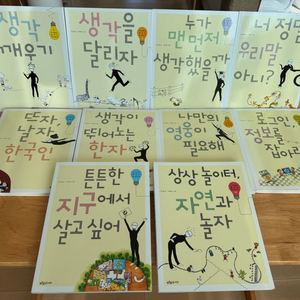 생각
깨우기
생각을
달리자
누가
맨 먼저
생각했을까
너 정말
우리말
아니?
뜨자,
날자
한국인
생각이
뛰어노는
한자
나만의
영웅이
필요해
로그인
정보를
잡아라
튼튼한
지구에서
살고 싶어
상상 놀이터,
자연과
놀자